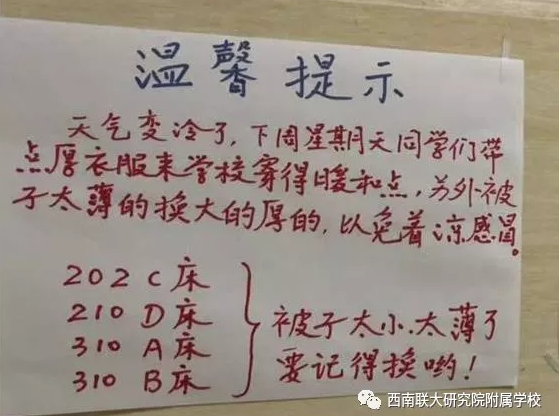 温馨提示
天气变冷了,下周星期天同学们带
点厚衣服来学校穿得暖和点,另外被
子太薄的换大的厚的,以免着凉感冒。
202 C床
210 D床
310 A床
310 B床
被子太小、太薄了
要记得换哟!
西南联大研究院附属学校